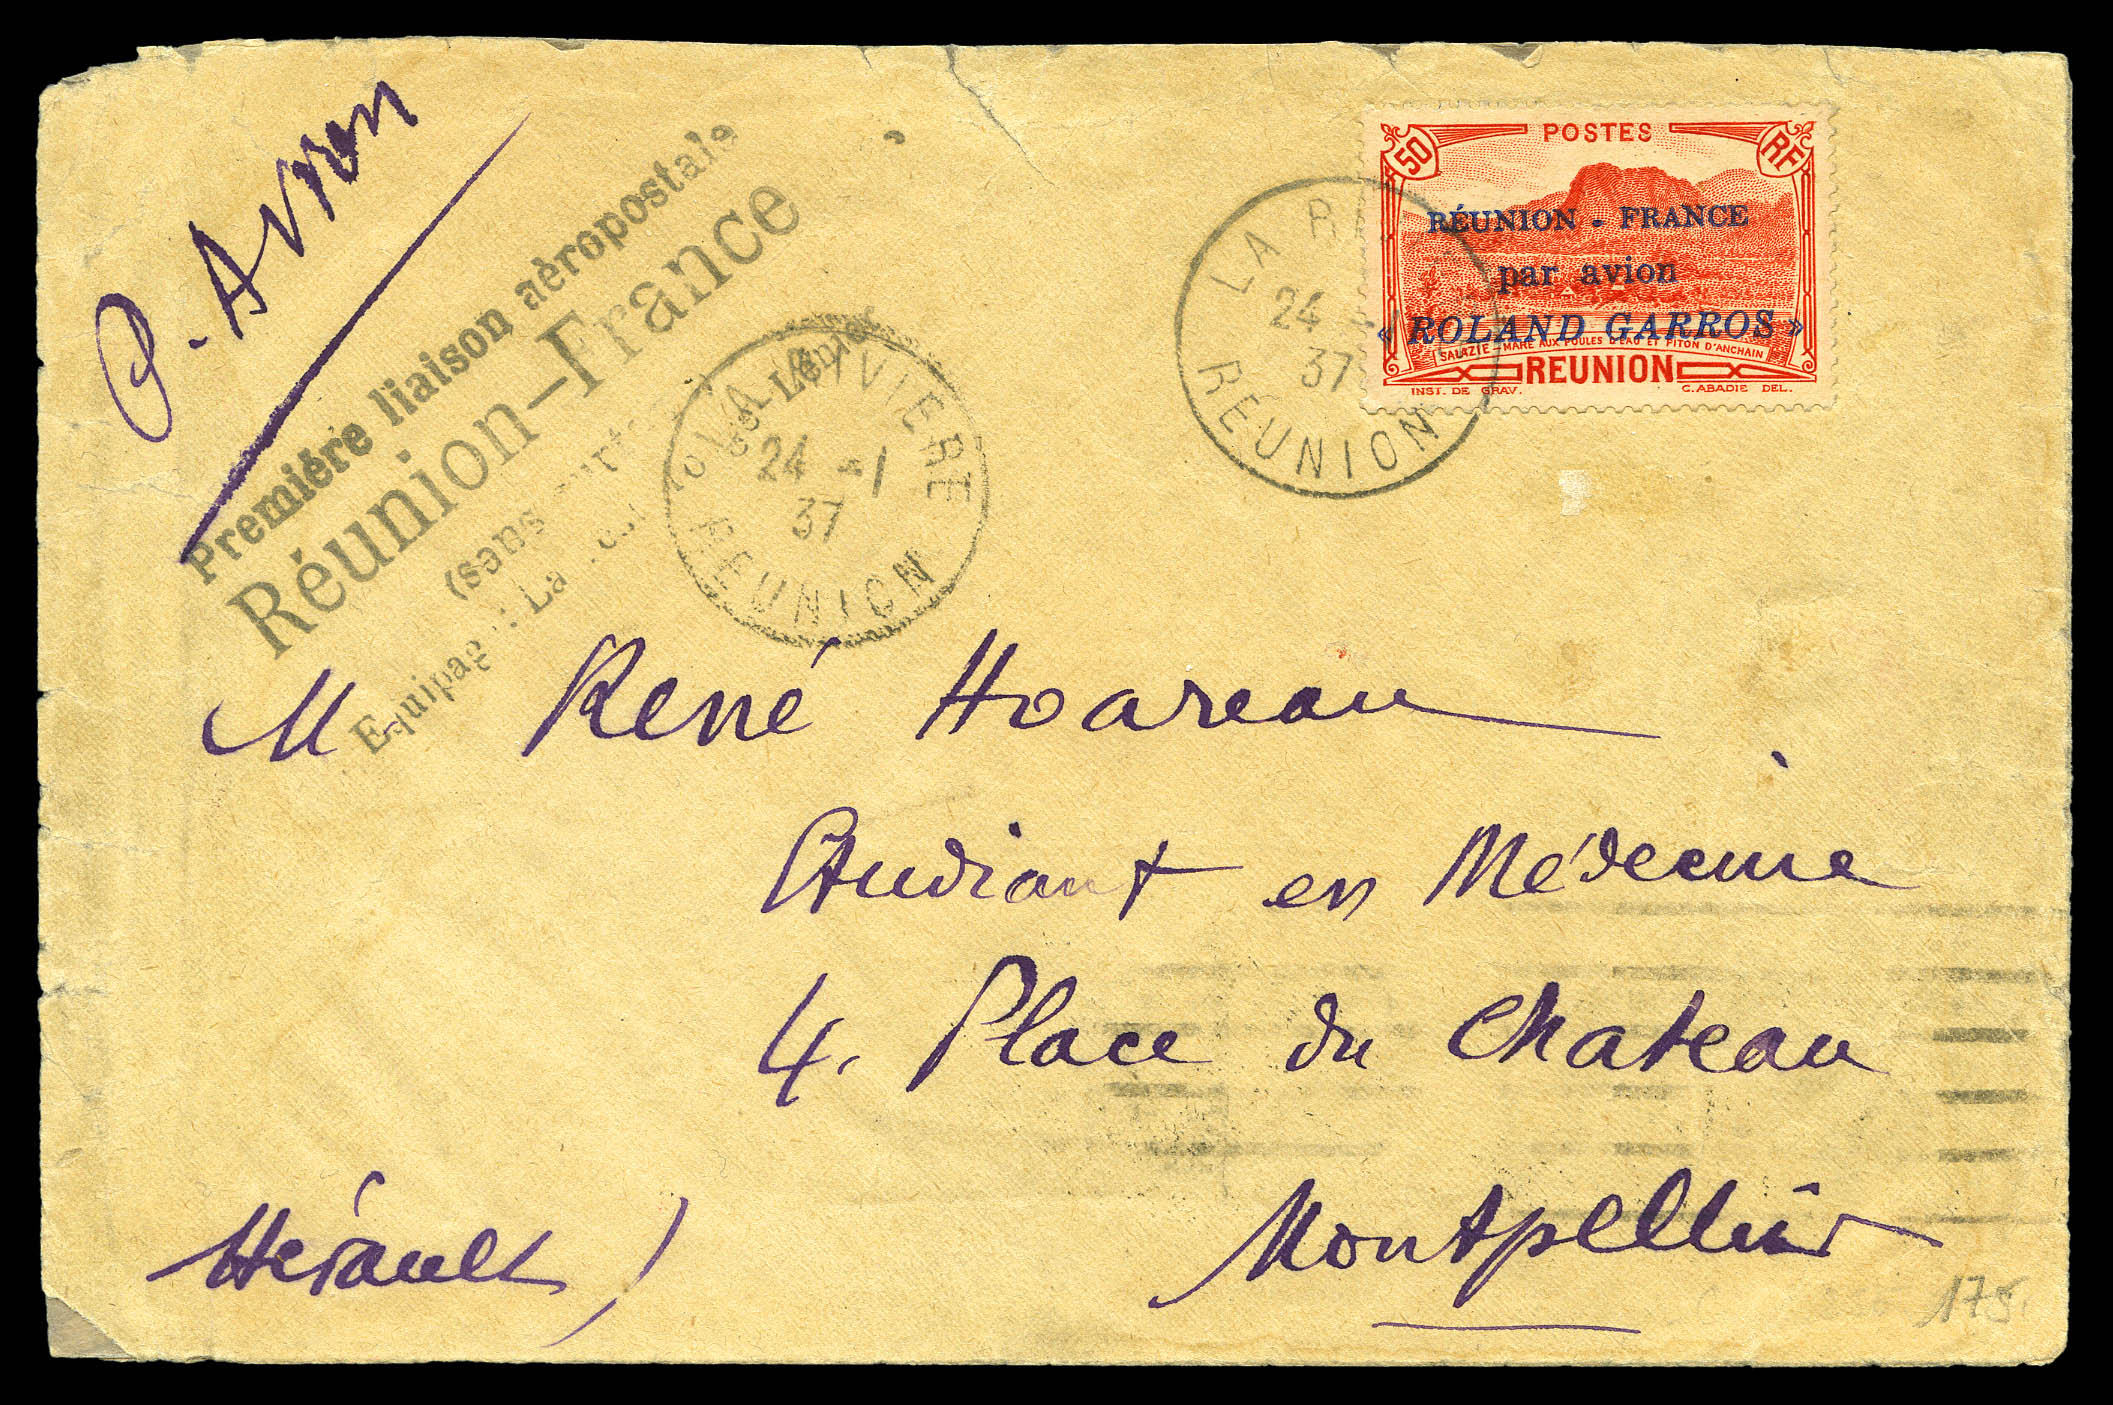 P. Avion
Première liaison aéropostale
Réunion-France
(sans
Equipage : La
Lénier
LA RIVIERE
24 -1
37
REUNION
LA RI
24 -1
37
REUNION
POSTES
50
RF
RÉUNION - FRANCE
par avion
« ROLAND GARROS »
SALAZIE - MARE AUX POULES D'EAU ET PITON D'ANCHAIN
REUNION
INST. DE GRAV.
C. ABADIE DEL.
M René Hoareau
Etudiant en Médecine
4. Place du Chateau
Montpellier
Hérault)
175.